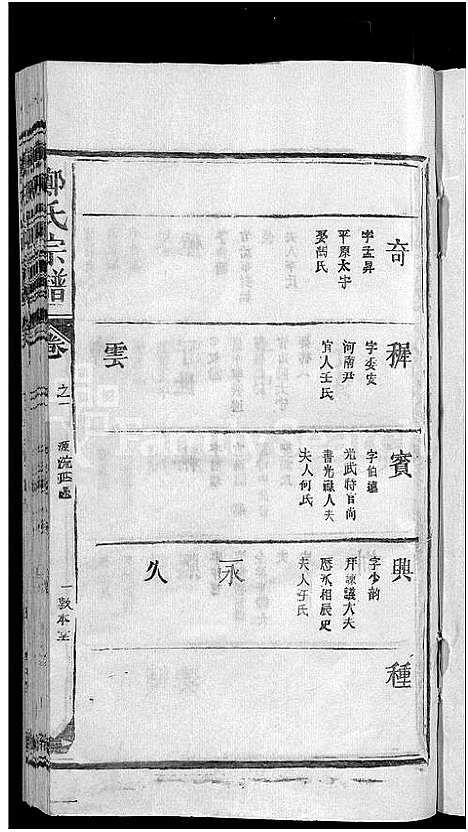 奇
字孟昇
平原太守
娶馮氏
穉
字季安
河南尹
宜人王氏
雲
賓
字伯
光武時官尚
書光祿大夫
夫人何氏
興
字少韵
拜諫議大夫
夫人王氏
永
久
種
鄭氏宗譜
卷
之一
源流
敦本堂
一